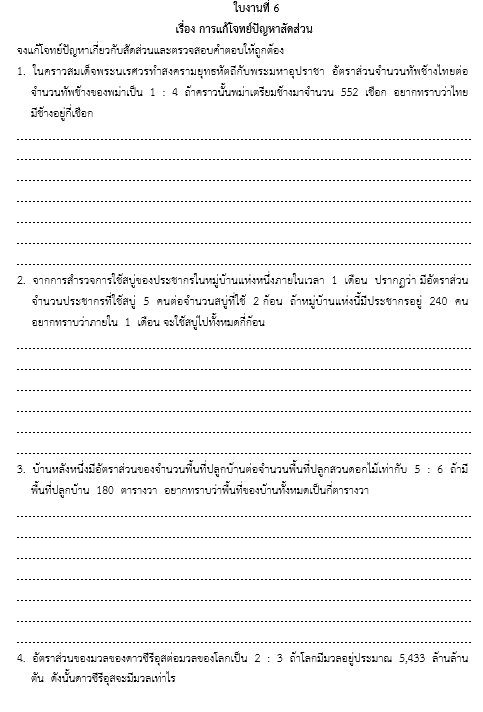 ใบงานที่ 6
เรื่อง การแก้โจทย์ปัญหาสัดส่วน
จงแก้โจทย์ปัญหาเกี่ยวกับสัดส่วนและตรวจสอบคำตอบให้ถูกต้อง
1. ในคราวสมเด็จพระนเรศวรทำสงครามยุทธหัตถีกับพระมหาอุปราชา อัตราส่วนจำนวนทัพช้างไทยต่อ
จำนวนทัพช้างของพม่าเป็น 1 : 4 ถ้าคราวนั้นพม่าเตรียมช้างมาจำนวน 552 เชือก อยากทราบว่าไทย
มีช้างอยู่กี่เชือก
2. จากการสำรวจการใช้สบู่ของประชากรในหมู่บ้านแห่งหนึ่งภายในเวลา 1 เดือน ปรากฏว่า มีอัตราส่วน
จำนวนประชากรที่ใช้สบู่ 5 คนต่อจำนวนสบู่ที่ใช้ 2 ก้อน ถ้าหมู่บ้านแห่งนี้มีประชากรอยู่ 240 คน
อยากทราบว่าภายใน 1 เดือน จะใช้สบู่ไปทั้งหมดกี่ก้อน
3. บ้านหลังหนึ่งมีอัตราส่วนของจำนวนพื้นที่ปลูกบ้านต่อจำนวนพื้นที่ปลูกสวนดอกไม้เท่ากับ 5 : 6 ถ้ามี
พื้นที่ปลูกบ้าน 180 ตารางวา อยากทราบว่าพื้นที่ของบ้านทั้งหมดเป็นกี่ตารางวา
4. อัตราส่วนของมวลของดาวซีรีอุสต่อมวลของโลกเป็น 2 : 3 ถ้าโลกมีมวลอยู่ประมาณ 5,433 ล้านล้าน
ตัน ดังนั้นดาวซีรีอุสจะมีมวลเท่าไร